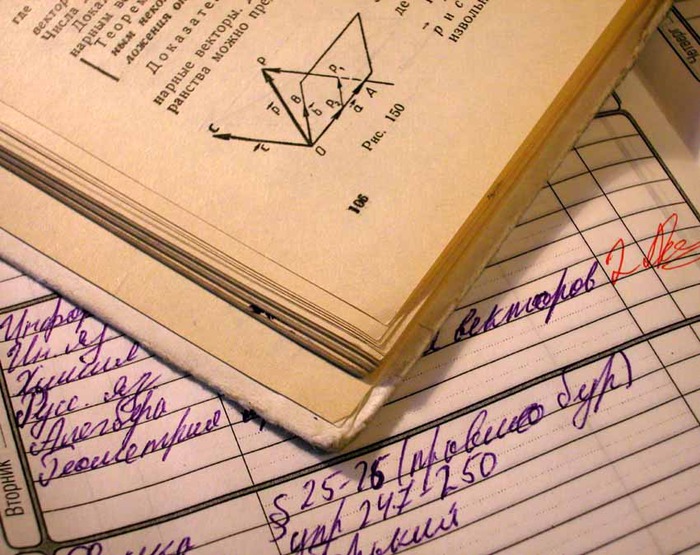 где
вектор
Числа
Дока
нарным ве
Теорем
ным неко
ложения оп
Доказате
нарные векторы.
ранства можно пре
де
рис
извольн
P
B
P₁
A
C
O
P₂
Рис. 150
106
Четверг
Инфор
Ин. яз
Химия
Русс. яз.
Алгебра
Геометрия
векторов
2
Вторник
§ 25-26 (правило бур)
упр 247-250